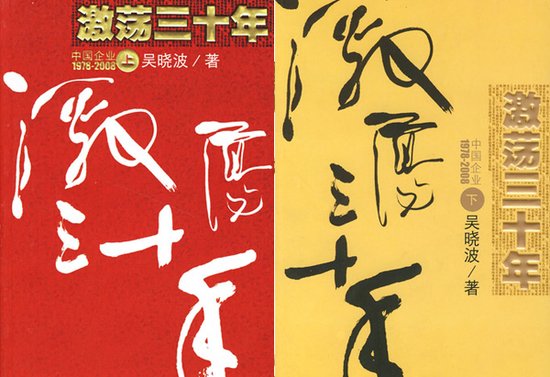 激荡三十年
中国企业
1978-2008
上
吴晓波/著
激荡
三十
年
激荡三十年
中国企业
1978-2008
下
吴晓波/著
激荡
三十
年